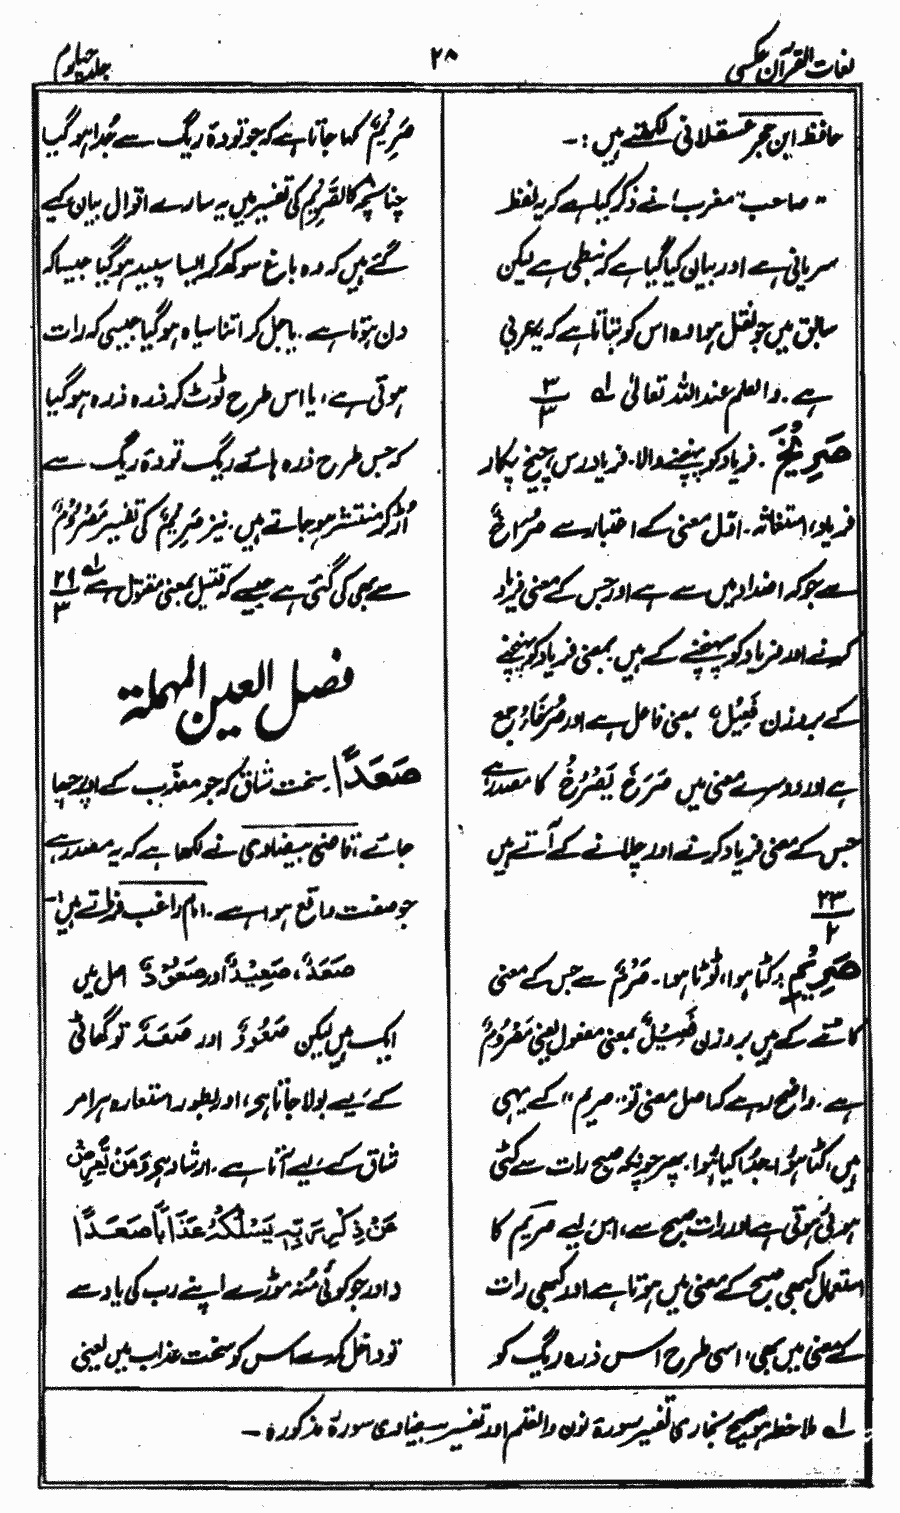 لغات القرآن عکسی
۲۸
جلد چہارم
حافظ ابن حجر عسقلانی لکھتے ہیں :-
" صاحب "مغرب" نے ذکر کیا ہے کہ یہ لفظ
سریانی ہے اور بیان کیا گیا ہے کہ نبطی ہے لیکن
سابق میں جو نقل ہوا وہ اس کو بتاتا ہے کہ یہ عربی
ہے۔ والعلم عند اللہ تعالیٰ لہ ۲۳/۳
صَرِیْخَ۔ فریاد کو پہنچنے والا۔ فریاد رس، چیخ پکار
فریاد، استغاثہ۔ اول معنی کے اعتبار سے صُرَاخٌ
سے جو کہ اضداد میں سے ہے اور جس کے معنی فریاد
کرنے اور فریاد کو پہنچنے کے ہیں بمعنی فریاد کو پہنچنے
کے بروزن فَعِیْلٌ بمعنی فاعل ہے اور صُرَخَاءُ جمع
ہے اور دوسرے معنی میں صَرَخَ یَصْرُخُ کا مصدر ہے
جس کے معنی فریاد کرنے اور چلانے کے آتے ہیں
۲۳/۲
صَرِیْمٌ۔ کٹا ہوا، ٹوٹا ہوا۔ صَرْمٌ سے جس کے معنی
کاٹنے کے ہیں بروزن فَعِیْلٌ بمعنی مفعول یعنی مَصْرُوْمٌ
ہے۔ واضح رہے کہ اصل معنی تو "صریم" کے یہی
ہیں، کٹا ہُوا، جدا کیا ہُوا۔ پھر چونکہ صبح رات سے کٹی
ہوئی ہوتی ہے اور رات صبح سے، اس لیے صَرِیم کا
استعمال کبھی صبح کے معنی میں ہوتا ہے اور کبھی رات
کے معنی میں بھی، اسی طرح اس ذرہ ریگ کو
صَرِیْمٌ کہا جاتا ہے کہ جو تودۂ ریگ سے جُدا ہو گیا
چنانچہ کَالصَّرِیْمِ کی تفسیر میں یہ سارے اقوال بیان کیے
گئے ہیں کہ وہ باغ سوکھ کر ایسا سپید ہو گیا جیسا کہ
دن ہوتا ہے۔ یا جل کر اتنا سیاہ ہو گیا جیسی کہ رات
ہوتی ہے، یا اس طرح ٹوٹ کر ذرہ ذرہ ہو گیا
کہ جس طرح ذرہ ہائے ریگ تودۂ ریگ سے
اُڑ کر منتشر ہو جاتے ہیں۔ نیز صَرِیْمٌ کی تفسیر مَصْرُوْمٌ
سے بھی کی گئی ہے جیسے کہ قتیل بمعنی مقتول ہے لہ ۲۹/۳
فصل العین المہملۃ
صَعَدًا۔ سخت شاق کہ جو معذّب کے اوپر چھا
جائے، قاضی بیضاوی نے لکھا ہے کہ یہ مصدر ہے
جو صفت واقع ہوا ہے۔ امام راغب فرماتے ہیں :-
صَعَدٌ، صَعِیْدٌ اور صَعُوْدٌ اصل میں
ایک ہیں لیکن صَعُوْدٌ اور صَعَدٌ تو گھاٹی
کے لیے بولا جاتا ہے، اور بطور استعارہ ہر امر
شاق کے لیے آتا ہے۔ ارشاد ہے وَمَنْ یُّعْرِضْ
عَنْ ذِکْرِ رَبِّہٖ یَسْلُکْہُ عَذَابًا صَعَدًا
(اور جو کوئی مُنہ موڑے اپنے رب کی یاد سے
تو داخل کرے اس کو سخت عذاب میں) یعنی
لہ ملاحظہ ہو صحیح بخاری تفسیر سورۃ نون والقلم اور تفسیر بیضاوی سورۃ مذکورہ۔